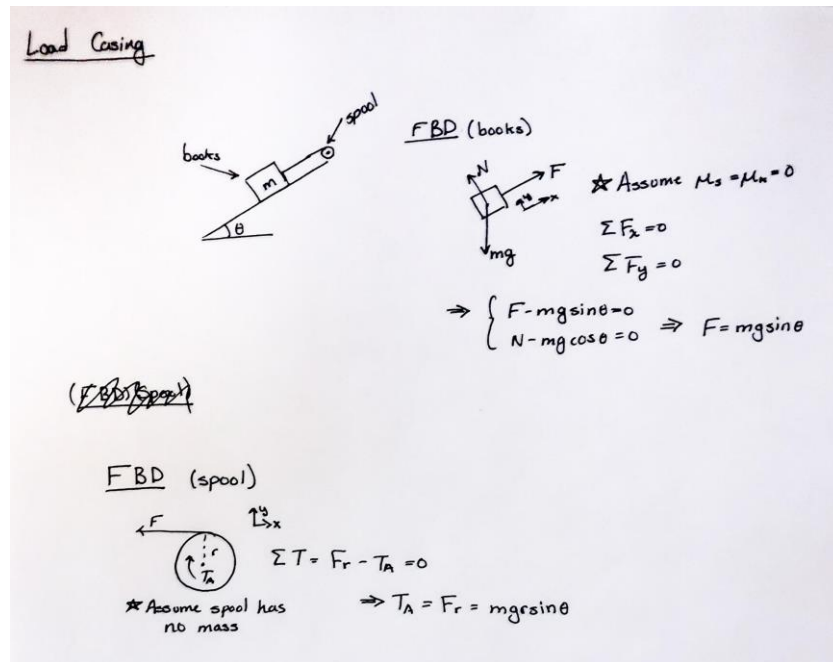 Load Casing
spool
books
m
θ
FBD (books)
N
F
y
x
mg
☆ Assume μs = μk = 0
ΣFx = 0
ΣFy = 0
⇒ { F - mg sinθ = 0
N - mg cosθ = 0 ⇒ F = mg sinθ
(FBD) (Spool)
FBD (spool)
F
y
x
r
TA
ΣT = Fr - TA = 0
☆ Assume spool has
no mass
⇒ TA = Fr = mgr sinθ